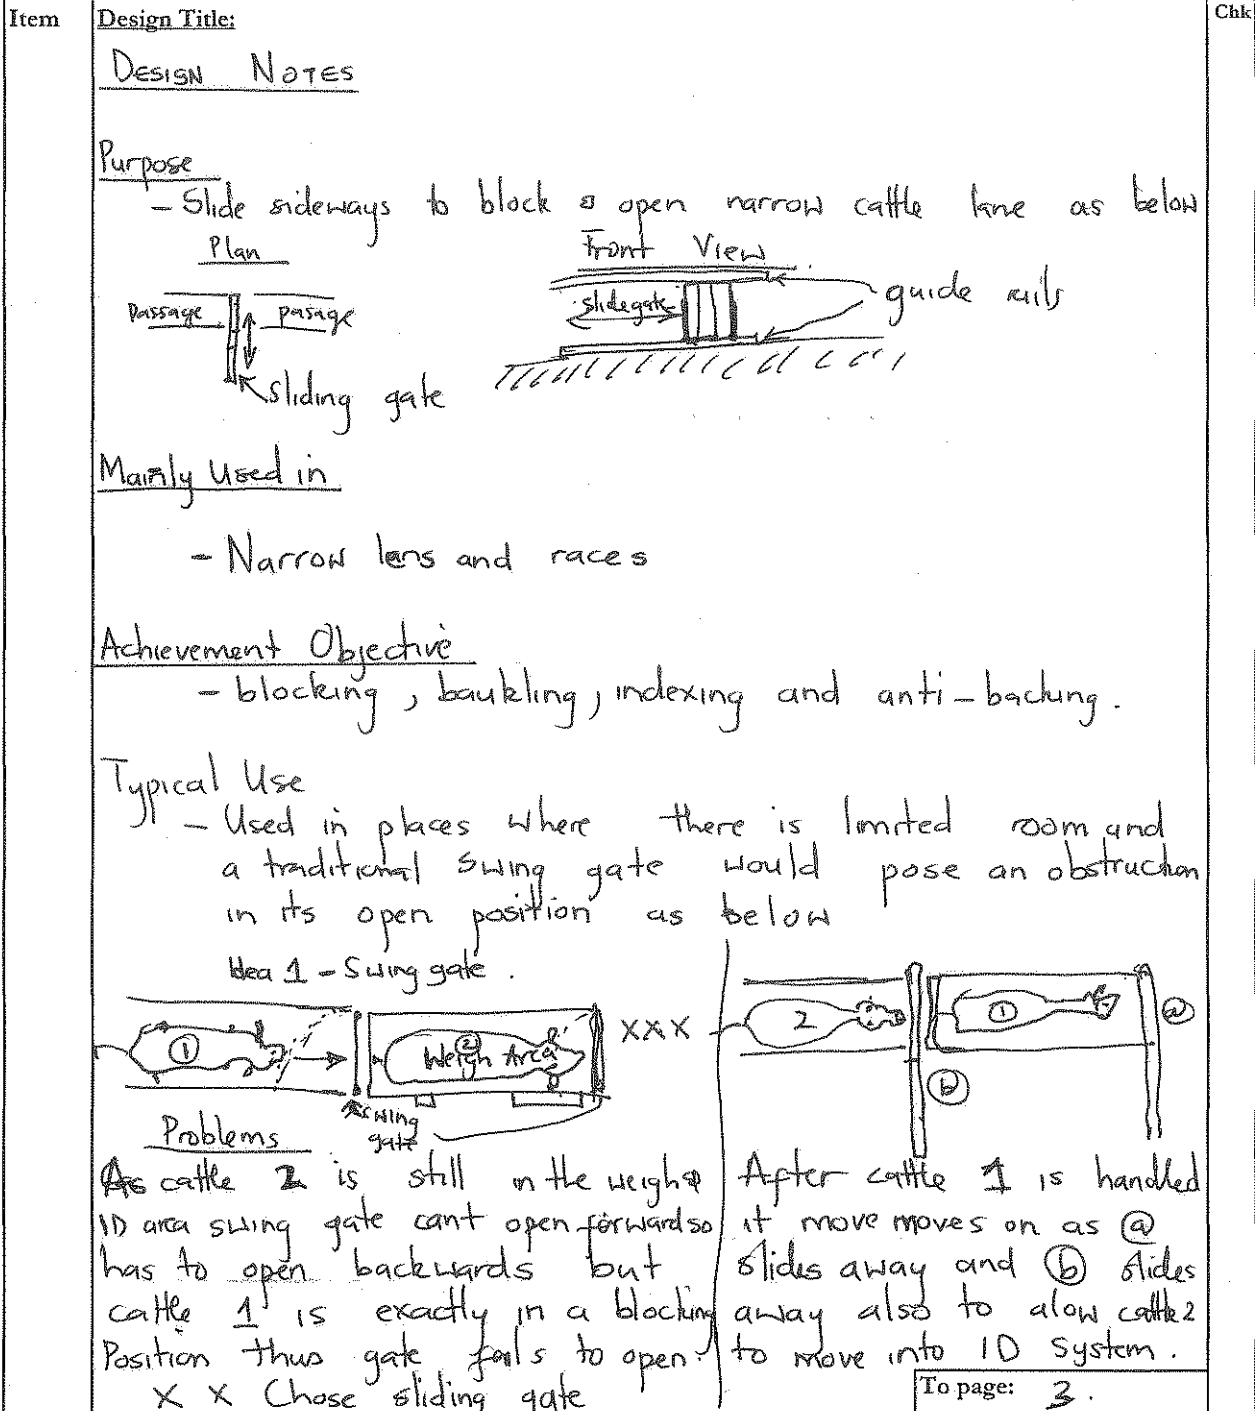 Item
Design Title:
Chk
DESIGN NOTES
Purpose
- Slide sideways to block & open narrow cattle lane as below
Plan
Front View
Passage
pasage
slidegate
guide rails
sliding gate
Mainly Used in
- Narrow lens and races
Achievement Objective
- blocking, baukling, indexing and anti-backing.
Typical Use
- Used in places where there is limited room and
a traditional swing gate would pose an obstruction
in its open position as below
Idea 1 - Swing gate.
1
2
Weigh Area
XXX
2
1
a
b
swing
gate
Problems
As cattle 2 is still in the weigh &
ID area swing gate cant open forward so
has to open backwards but
cattle 1 is exactly in a blocking
Position thus gate fails to open.
X X Chose sliding gate
After cattle 1 is handled
it move moves on as a
slides away and b slides
away also to alow cattle 2
to move into ID System.
To page: 3.